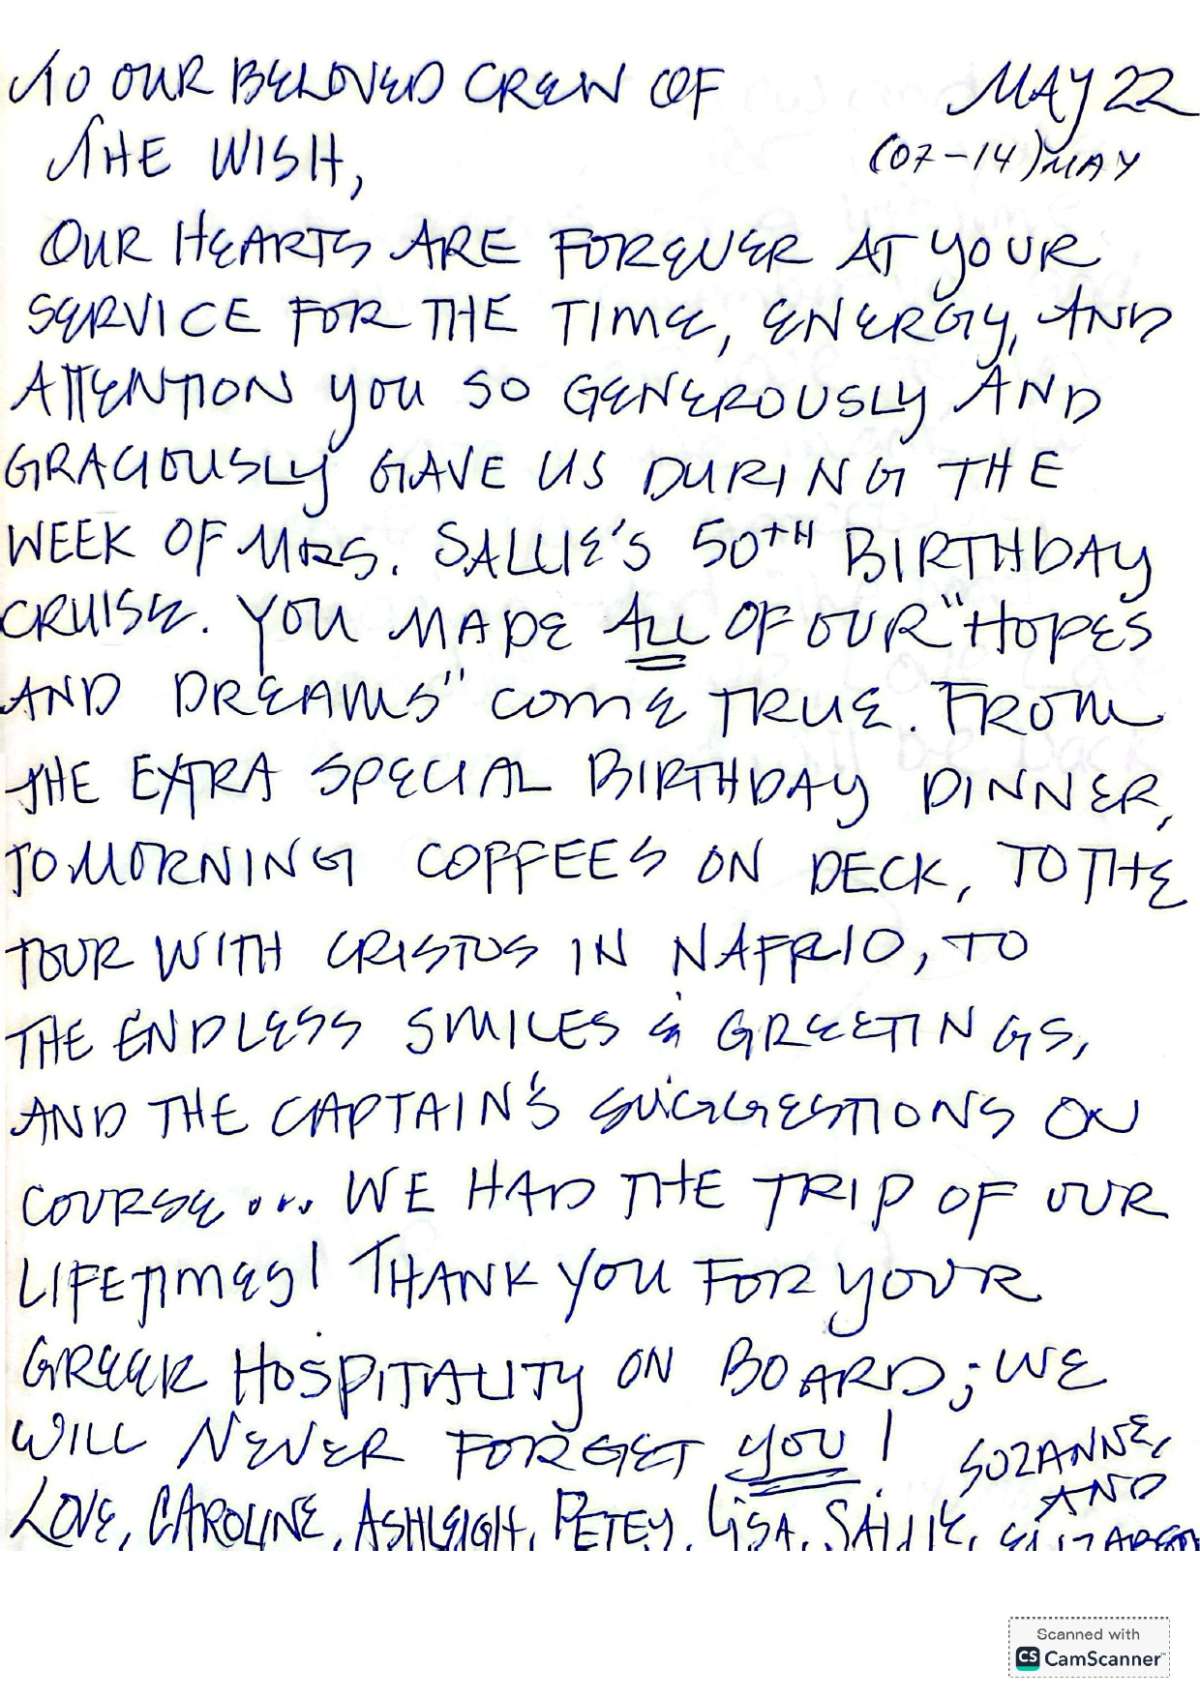 TO OUR BELOVED CREW OF MAY 22
THE WISH, (07-14) MAY
OUR HEARTS ARE FOREVER AT YOUR
SERVICE FOR THE TIME, ENERGY, AND
ATTENTION YOU SO GENEROUSLY AND
GRACIOUSLY GAVE US DURING THE
WEEK OF MRS. SALLIE'S 50TH BIRTHDAY
CRUISE. YOU MADE ALL OF OUR "HOPES
AND DREAMS" COME TRUE. FROM
THE EXTRA SPECIAL BIRTHDAY DINNER,
TO MORNING COFFEES ON DECK, TO THE
TOUR WITH CRISTOS IN NAFPLIO, TO
THE ENDLESS SMILES & GREETINGS,
AND THE CAPTAIN'S SUGGESTIONS ON
COURSE... WE HAD THE TRIP OF OUR
LIFETIMES! THANK YOU FOR YOUR
GREEK HOSPITALITY ON BOARD; WE
WILL NEVER FORGET YOU! SUZANNE,
AND
LOVE, CAROLINE, ASHLEIGH, PETEY, LISA, SALLIE, ELIZABETH
Scanned with
CS CamScanner